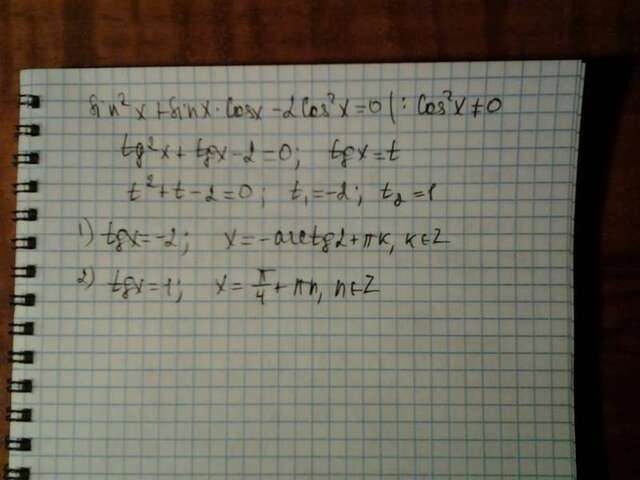 sin²x + sinx·cosx - 2cos²x = 0 | : cos²x ≠ 0
tg²x + tgx - 2 = 0; tgx = t
t² + t - 2 = 0; t₁ = -2; t₂ = 1
1) tgx = -2; x = -arctg2 + πk, k∈Z
2) tgx = 1; x = π/4 + πn, n∈Z